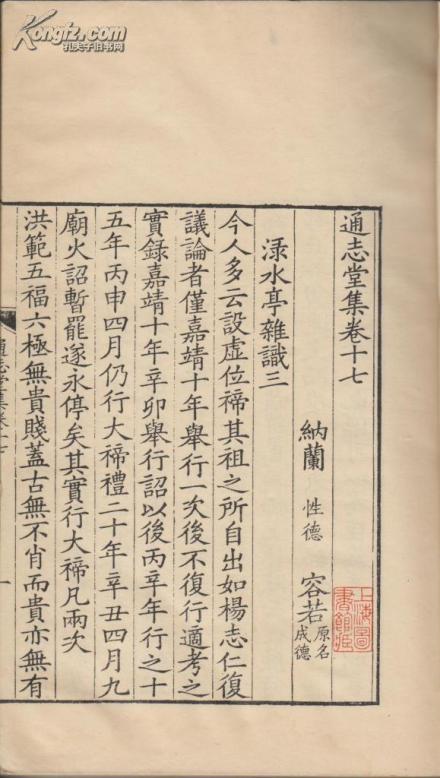 Kongfz.com
孔夫子旧书网
通志堂集卷十七
納蘭 性德 容若 原名成德
上海圖書館藏
渌水亭雜識三
今人多云設虛位禘其祖之所自出如楊志仁復
議論者僅嘉靖十年舉行一次後不復行適考之
實錄嘉靖十年辛卯舉行詔以後丙辛年行之十
五年丙申四月仍行大禘禮二十年辛丑四月九
廟火詔暫罷遂永停矣其實行大禘凡兩次
洪範五福六極無貴賤蓋古無不肖而貴亦無有
通志堂集卷十七
一